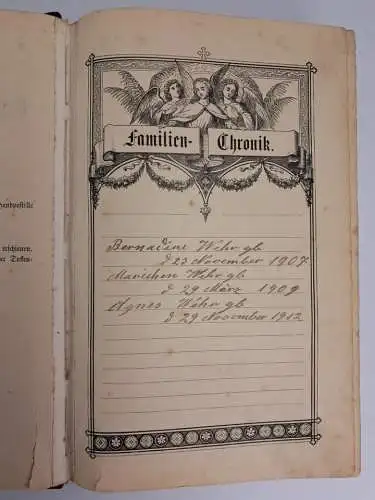 Familien-Chronik.
Bernadine Wehr gb
d 23 November 1907
Marichen Wehr gb
d 29 März 1909
Agnes Wehr gb
d 29 November 1912
erschienen,